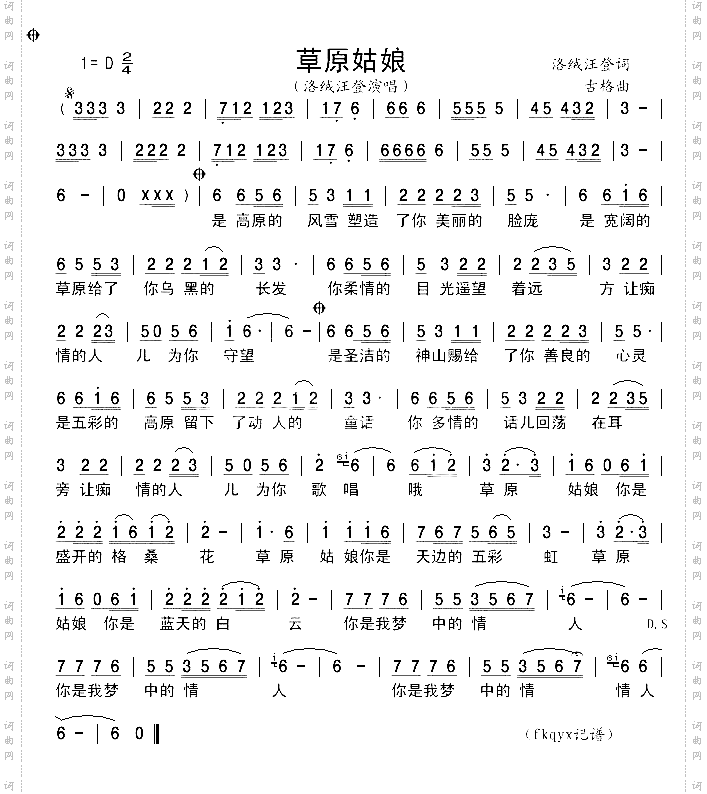 1= D 2/4
草原姑娘
洛绒汪登词
(洛绒汪登演唱)
吉格曲
( 3 3 3 3 3 | 2 2 2 2 | 7 1 2 1 2 3 | 1 7 6 | 6 6 6 6 | 5 5 5 5 | 4 5 4 3 2 | 3 - |
3 3 3 3 3 | 2 2 2 2 2 | 7 1 2 1 2 3 | 1 7 6 | 6 6 6 6 6 | 5 5 5 | 4 5 4 3 2 | 3 - |
6 - | 0 X X X ) | 6 6 5 6 | 5 3 1 1 | 2 2 2 2 3 | 5 5 · | 6 6 1 6 |
是 高原的 风雪 塑造 了你 美丽的 脸庞 是 宽阔的
6 5 5 3 | 2 2 2 1 2 | 3 3 · | 6 6 5 6 | 5 3 2 2 | 2 2 3 5 | 3 2 2 |
草原给了 你乌 黑的 长发 你柔情的 目 光遥望 着远 方 让痴
2 2 2 3 | 5 0 5 6 | 1 6 · | 6 - | 6 6 5 6 | 5 3 1 1 | 2 2 2 2 3 | 5 5 · |
情的人 儿 为你 守望 是圣洁的 神山赐给 了你 善良的 心灵
6 6 1 6 | 6 5 5 3 | 2 2 2 1 2 | 3 3 · | 6 6 5 6 | 5 3 2 2 | 2 2 3 5 |
是五彩的 高原 留下 了动 人的 童话 你 多情的 话儿回荡 在耳
3 2 2 | 2 2 2 3 | 5 0 5 6 | 2 6i 6 | 6 1 2 | 3 2 · 3 | 1 6 0 6 1 |
旁 让痴 情的人 儿 为你 歌 唱 哦 草 原 姑娘 你是
2 2 2 1 6 1 2 | 2 - | 1 · 6 | 1 1 1 6 | 7 6 7 5 6 5 | 3 - | 3 2 · 3 |
盛开的 格 桑 花 草 原 姑 娘你是 天边的 五彩 虹 草 原
1 6 0 6 1 | 2 2 2 2 1 2 | 2 - | 7 7 7 6 | 5 5 3 5 6 7 | i 6 - | 6 - |
姑娘 你是 蓝天的 白 云 你是我梦 中的 情 人 D.S
7 7 7 6 | 5 5 3 5 6 7 | i 6 - | 6 - | 7 7 7 6 | 5 5 3 5 6 7 | 6i 6 - |
你是我梦 中的 情 人 你是我梦 中的 情 情 人
6 - | 6 0 ‖
(fkqyx记谱)
词曲网